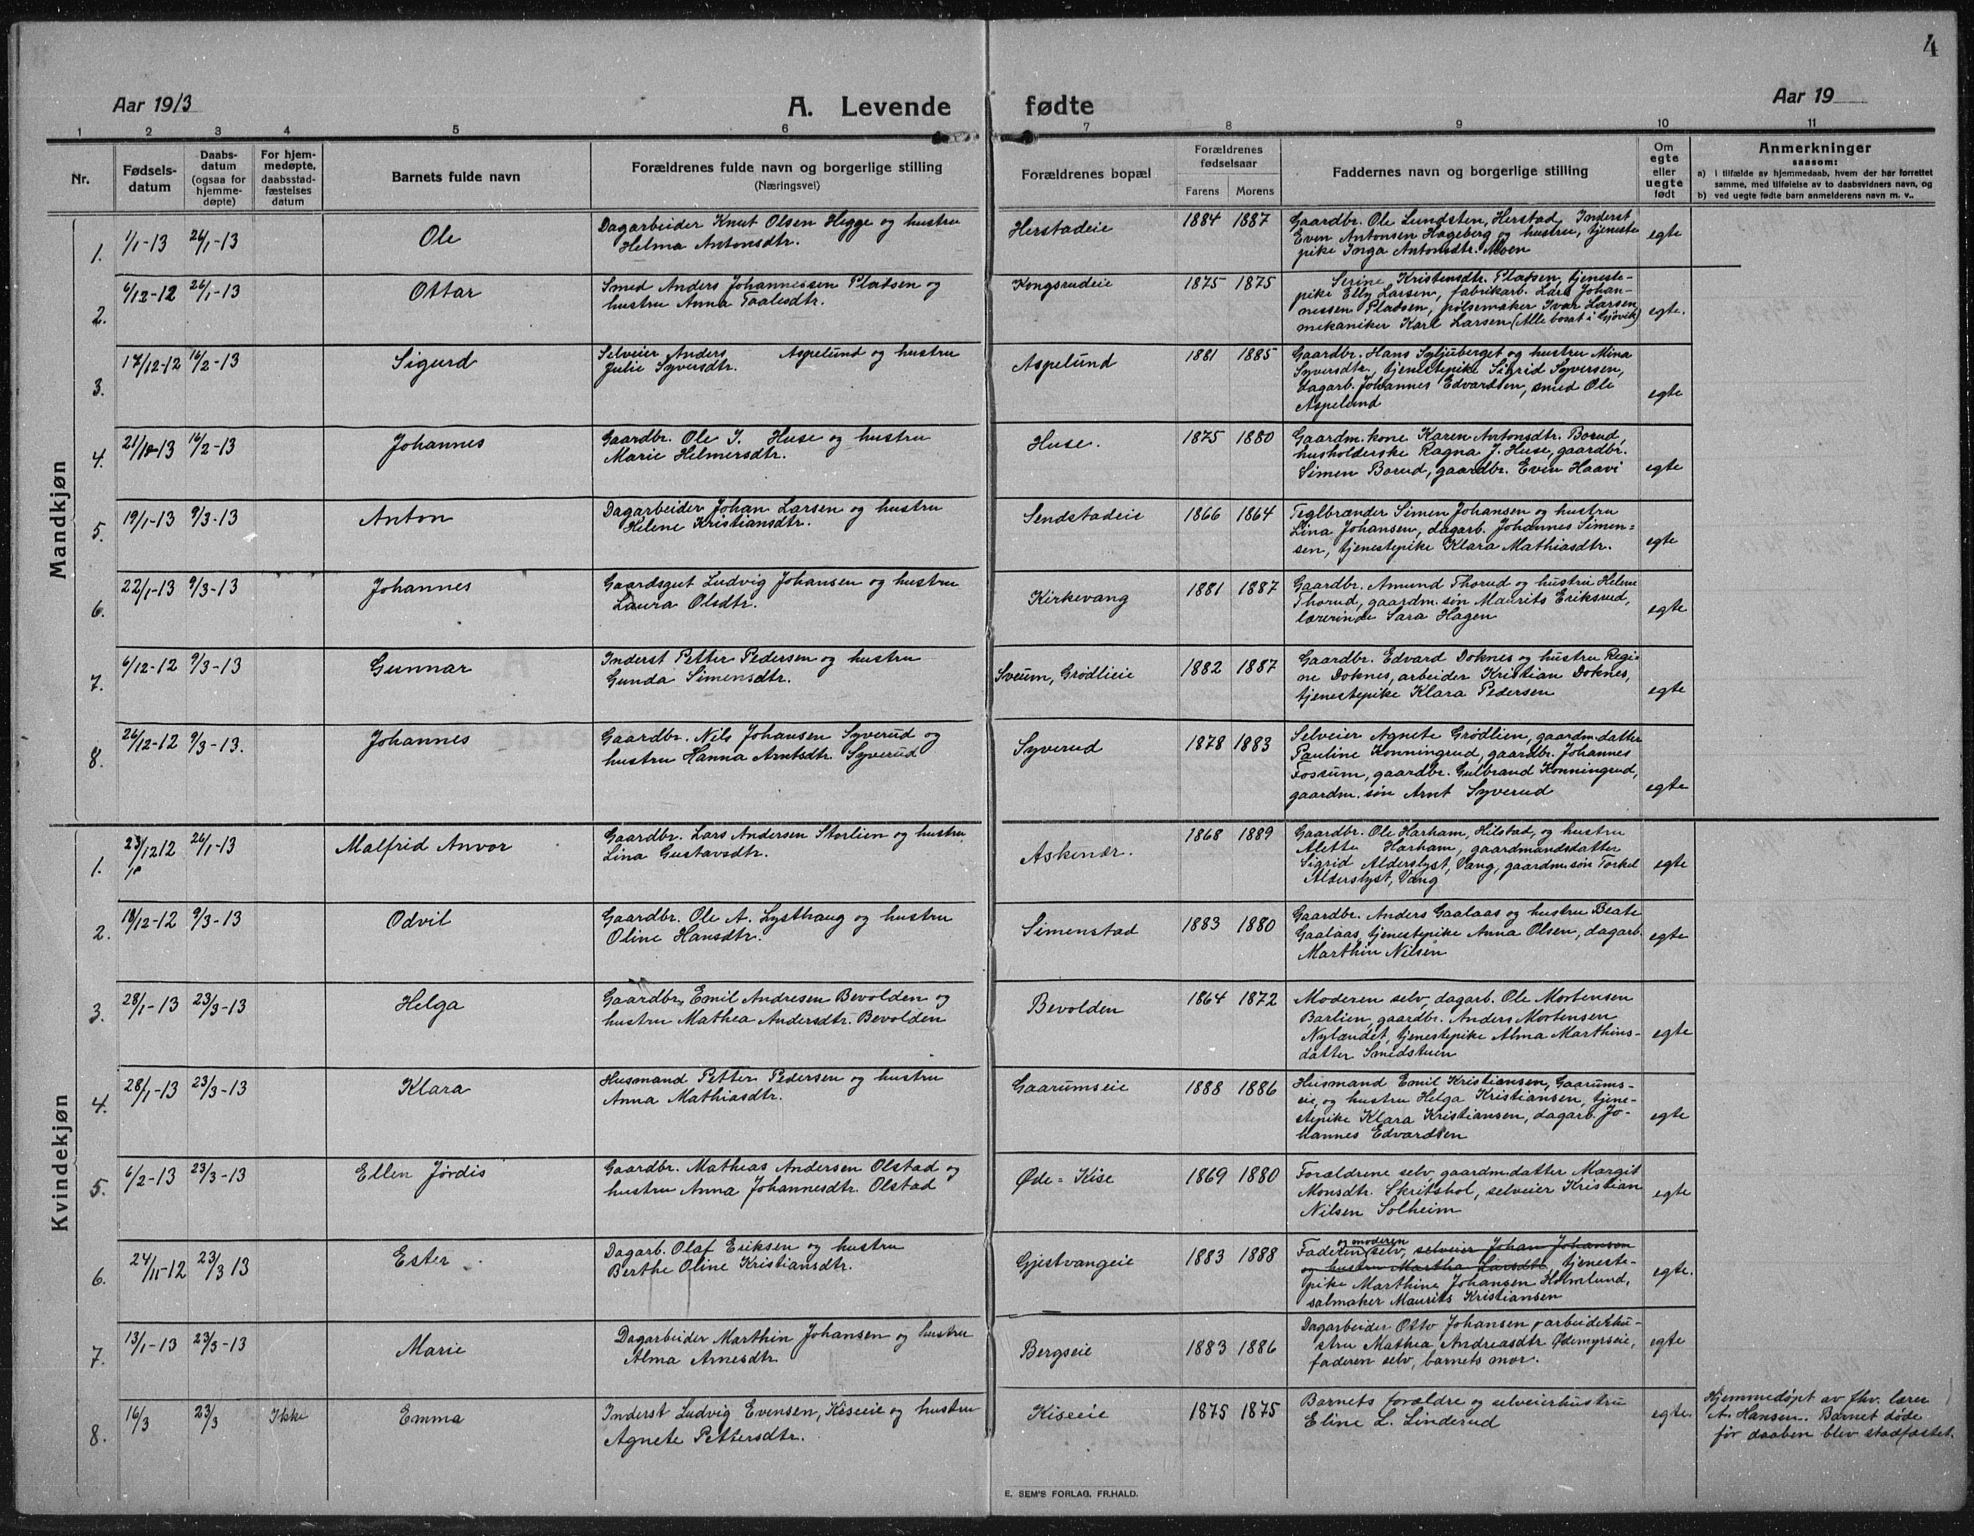 4
Aar 1913 A. Levende fødte Aar 19
1 2 3 4 5 6 7 8 9 10 11
Nr.
Fødsels-
datum
Daabs-
datum
(ogsaa for
hjemme-
døpte)
For hjem-
medøpte,
daabsstad-
fæstelses
datum
Barnets fulde navn
Forældrenes fulde navn og borgerlige stilling
(Næringsvei)
Forældrenes bopæl
Forældrenes
fødselsaar
Farens Morens
Faddernes navn og borgerlige stilling
Om
egte
eller
uegte
født
Anmerkninger
saasom:
a) i tilfælde av hjemmedaab, hvem der har forrettet
samme, med tilføielse av to daabsvidners navn, og
b) ved uegte fødte barn anmelderens navn m. v..
Mandkjøn
1. 1/1-13 26/1-13 Ole
Dagarbeider Knut Olsen Hegge og hustru
Helma Antonsdtr.
Herstadeie 1884 1887
Gaardbr. Ole Lundsten, Herstad, Inderst
Even Antonsen Hageberg og hustru, tjeneste
pike Inga Antonsdtr. Alven
egte
2. 6/12-12 26/1-13 Ottar
Smed Anders Johannessen Pladsen og
hustru Anna Taalesdtr.
Kongsrudeie 1875 1875
Serine Kristensdtr. Pladsen, tjeneste-
pike Elly Larsen, fabrikarb. Lars Johan-
nessen Pladsen, pølsemaker Ivar Larsen
mekaniker Karl Larsen (Alle bosat i Gjøvik)
egte.
3. 17/12-12 16/2-13 Sigurd
Selveier Anders Aspelund og hustru
Julie Syversdtr.
Aspelund 1881 1885
Gaardbr. Hans Syljuberget og hustru Mina
Syversdtr., tjenestepike Sigrid Syversen,
dagarb. Johannes Edvardsen, smed Ole
Aspelund
egte
4. 16/2-13 Johannes
Gaardbr. Ole J. Huse og hustru
Marie Helmersdtr.
Huse. 1875 1880
Gaardm. kone Karen Antonsdtr. Borud,
husholderske Ragna J. Huse, gaardbr.
Simen Borud, gaardbr. Even Haavi
egte
5. 19/1-13 9/3-13 Anton
Dagarbeider Johan Larsen og hustru
Helene Kristiansdtr.
Sendstadeie 1866 1864
Teglbrænder Simen Johansen og hustru
Lina Johansen, dagarb. Johannes Simen=
sen, tjenestepike Klara Mathiasdtr.
egte
6. 22/1-13 9/3-13 Johannes
Gaardsgut Ludvig Johansen og hustru
Laura Olsdtr.
Kirkevang 1881 1887
Gaardbr. Amund Thorud og hustru Helene
Thorud, gaardm. søn Maurits Eriksrud,
lærerinde Sara Hagen
egte
7. 6/12-12 9/3-13 Gunnar
Inderst Petter Pedersen og hustru
Gunda Simensdtr.
Sveum, Grødlieie 1882 1887
Gaardbr. Edvard Doknes og hustru Regi-
ne Doknes, arbeider Kristian Doknes,
tjenestepike Klara Pedersen
egte
8. 26/12-12 9/3-13. Johannes
Gaardbr. Nils Johansen Syverud og
hustru Hanna Arntsdtr. Syverud
Syverud 1878 1883
Selveier Agnete Grødlien, gaardm. datter
Pauline Konningrud, gaardbr. Johannes
Fossum, gaardbr. Gulbrand Konningrud,
gaardm. søn Arnt Syverud
egte
Kvindekjøn
1. 23/12 12 26/1-13 Malfrid Anvor
Gaardbr. Lars Andersen Storlien og hustru
Lina Gustavsdtr.
Askenær. 1868 1889
Gaardbr. Ole Harham, Hilstad, og hustru
Alette Harham, gaardmandsdatter
Sigrid Alderslyst, Vang, gaardm. søn Torkel
Alderslyst, Vang
egte
2. 18/12-12 9/3-13 Odvil
Gaardbr. Ole A. Lysthaug og hustru
Oline Hansdtr.
Simenstad 1883 1880
Gaardbr. Anders Gaalaas og hustru Beate
Gaalaas, tjenestepike Anna Olsen, dagarb.
Marthin Nilsen
egte
3. 28/1-13 23/3-13 Helga
Gaardbr. Emil Andresen Bevolden og
hustru Mathea Andersdtr. Bevolden
Bevolden 1864 1872
Moderen selv, dagarb. Ole Mortensen
Barlien, gaardbr. Anders Mortensen
Nylændet, tjenestepike Alma Marthins-
datter Smedstuen
egte
4. 28/1-13 23/3-13 Klara
Husmand Petter Pedersen og hustru
Anna Mathiasdtr.
Gaarumseie 1888 1886
Husmand Emil Kristiansen, Gaarums-
eie, og hustru Helga Kristiansen, tjene-
stepike Klara Kristiansen, dagarb. Jo-
hannes Edvardsen
egte
5. 6/2-13 23/3-13 Ellen Jørdis
Gaardbr. Mathias Andersen Olstad og
hustru Anna Johannesdtr. Olstad
Øde=Kise 1869 1880
Forældrene selv, gaardm. datter Margit
Monsdtr. Skritshol, selveier Kristian
Nilsen Solheim
egte
6. 24/11-12 23/3 13 Ester
Dagarb. Olaf Eriksen og hustru
Berthe Oline Kristiansdtr.
Gjestvangeie 1883 1888
og moderen
Faderen selv, selveier Johan Johansen
og hustru Martha Larsdtr, tjeneste-
pike Marthine Johansen Holmlund,
salmaker Maurits Kristiansen
egte.
7. 13/1-13 23/3-13 Marie
Dagarbeider Marthin Johansen og hustru
Alma Arnesdtr.
Bergseie 1883 1886
Dagarbeider Otto Johansen, arbeiderhu-
stru Mathea Andreasdtr Ødemyrseie,
faderen selv, barnets mor.
egte
8. 16/3 23/3 Ikke Emma
Inderst Ludvig Evensen, Kiseeie og hustru
Agnete Pettersdtr.
Kiseeie 1875 1875
Barnets forældre og selveierhustru
Eline L. Linderud
egte.
Hjemmedøpt av fhv. lærer
A. Hansen. Barnet døde
før daaben blev stadfæstet.
E. SEM'S FORLAG, FR.HALD.